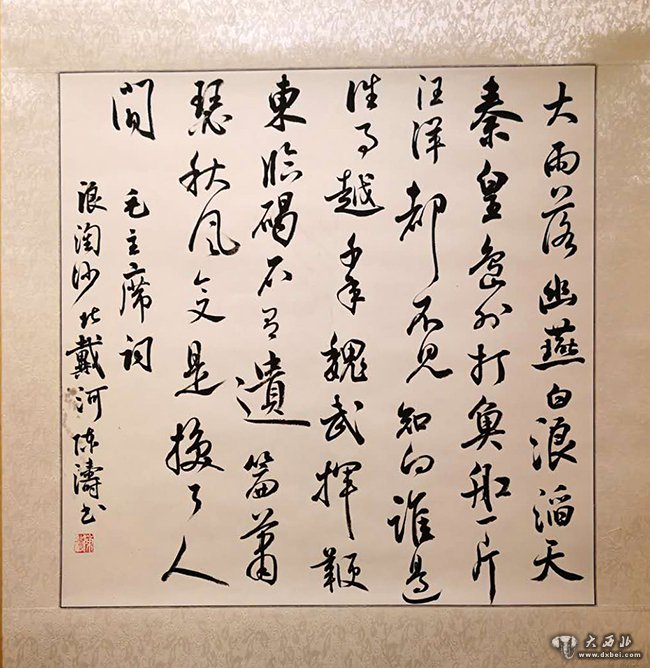 大雨落幽燕白浪滔天
秦皇島外打魚船一片
汪洋都不見知向誰邊
往事越千年魏武揮鞭
東臨碣石有遺篇蕭
瑟秋風今又是換了人
間
毛主席詞
浪淘沙北戴河 陳濤书
大西北
www.dxbei.com